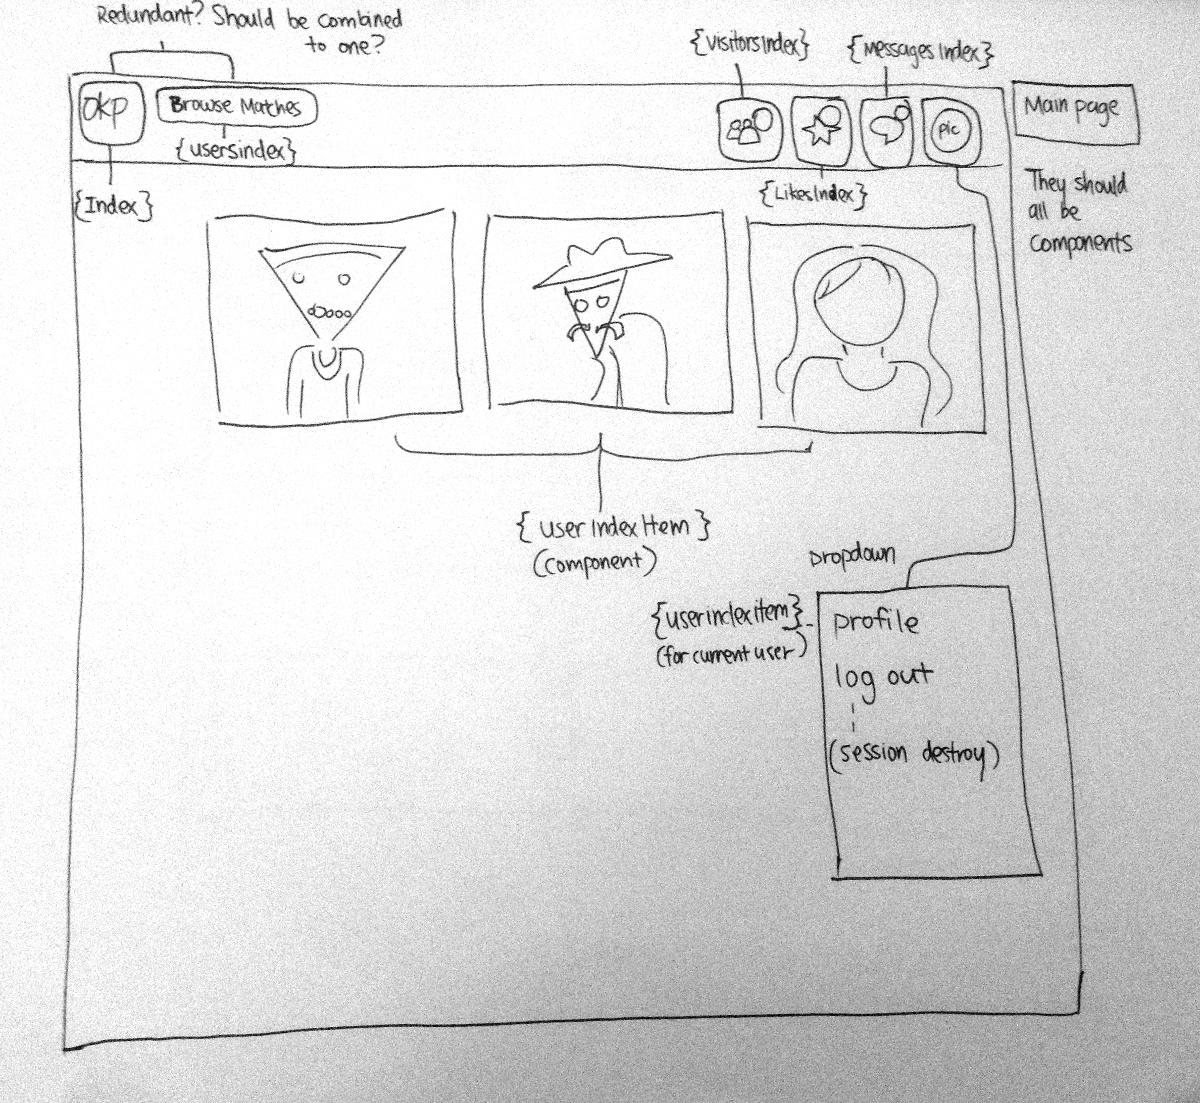 Redundant? Should be combined
to one?
{VisitorsIndex}
{MessagesIndex}
okp
Browse Matches
{usersindex}
{Index}
pic
{LikesIndex}
Main page
They should
all be
components
{userIndexItem}
(component)
Dropdown
{userindexitem}
(for current user)
profile
log out
(session destroy)